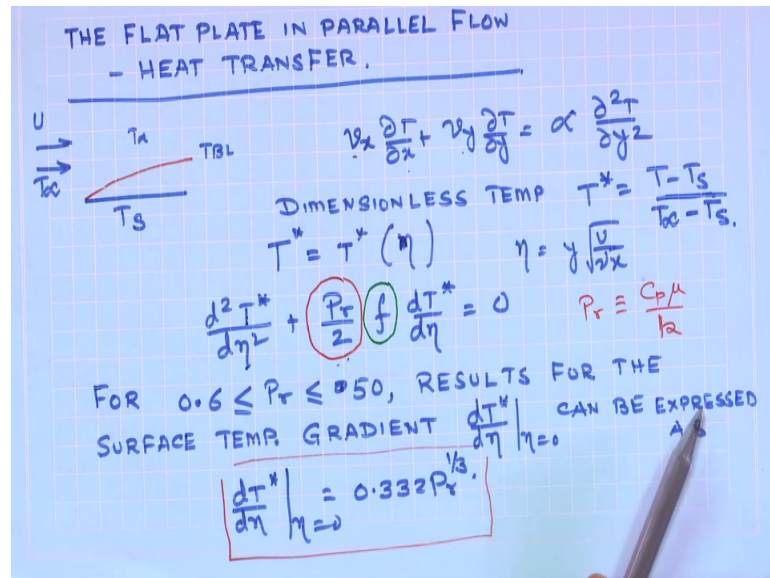 THE FLAT PLATE IN PARALLEL FLOW
- HEAT TRANSFER.
U
T∞
T∞
TBL
Ts
vx ∂T/∂x + vy ∂T/∂y = α ∂²T/∂y²
DIMENSIONLESS TEMP T* = (T-Ts)/(T∞-Ts).
T* = T* (η) η = y√(U/νx)
d²T*/dη² + Pr/2 f dT*/dη = 0 Pr ≡ Cpμ/k
FOR 0.6 ≤ Pr ≤ 50, RESULTS FOR THE
SURFACE TEMP. GRADIENT dT*/dη|η=0 CAN BE EXPRESSED
AS
dT*/dη|η=0 = 0.332 Pr^1/3.